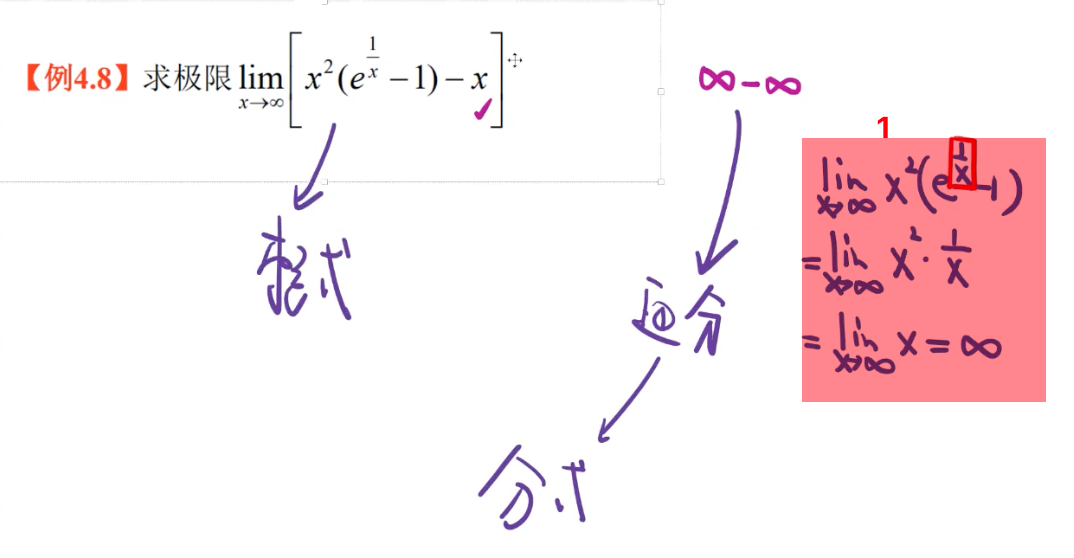 【例4.8】求极限 lim x→∞ [x²(e^(1/x) − 1) − x]
∞ − ∞
整式
通分
分式
1
lim x→∞ x²(e^(1/x) − 1)
= lim x→∞ x² · 1/x
= lim x→∞ x = ∞